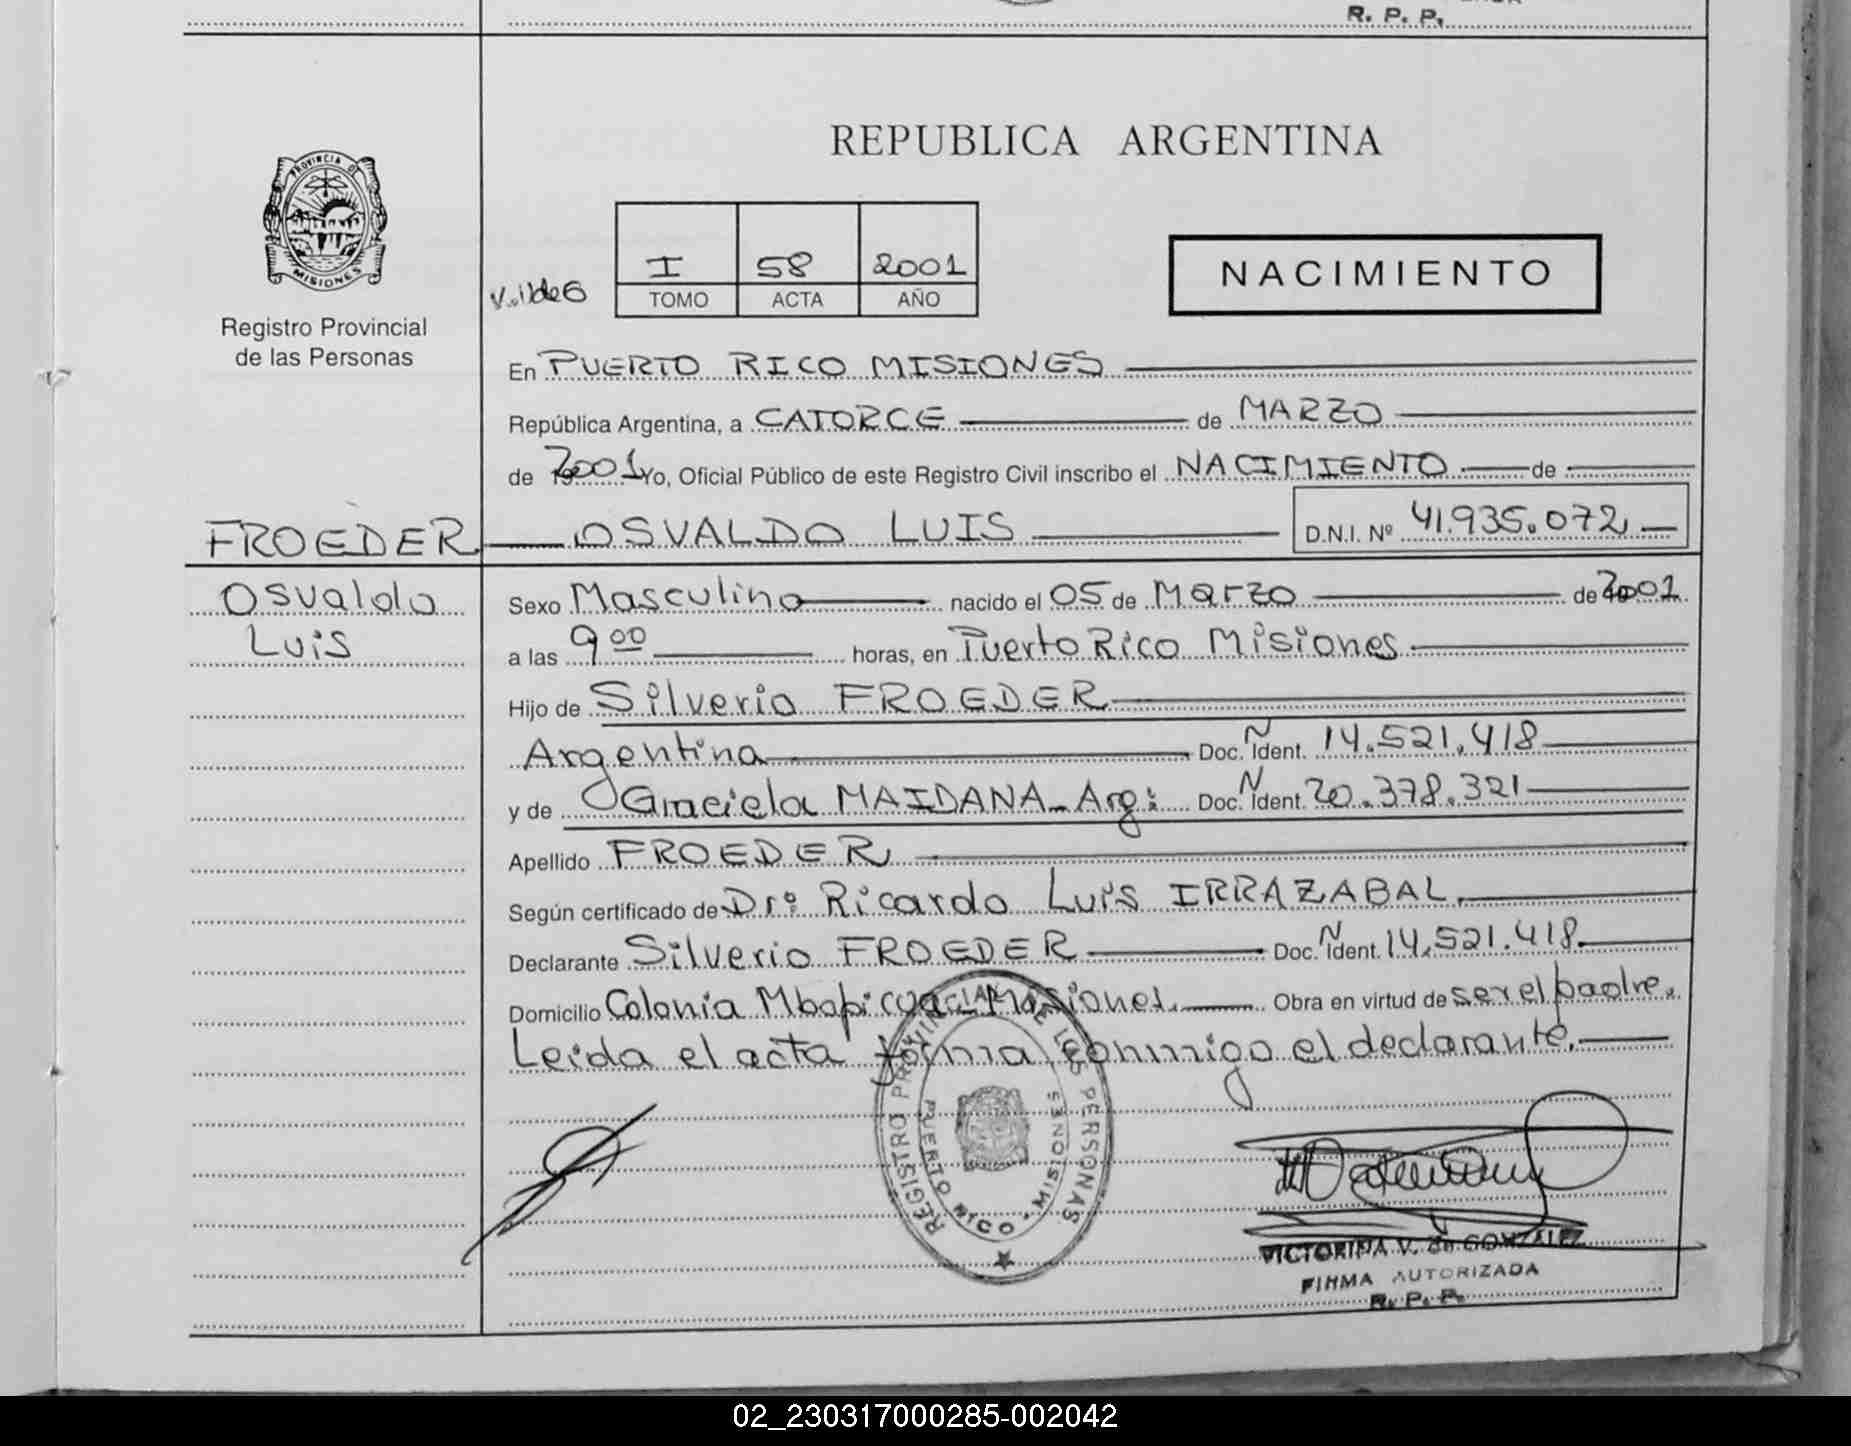 R. P. P.
REPUBLICA ARGENTINA
PROVINCIA DE
MISIONES
Registro Provincial
de las Personas
I 58 2001
TOMO ACTA AÑO
NACIMIENTO
En PUERTO RICO MISIONES
República Argentina, a CATORCE de MARZO
de 2001 Yo, Oficial Público de este Registro Civil inscribo el NACIMIENTO de
FROEDER OSVALDO LUIS D.N.I. Nº 41.935.072
Osvaldo
Luis
Sexo Masculino nacido el 05 de Marzo de 2001
a las 9 00 horas, en Puerto Rico Misiones
Hijo de Silverio FROEDER
Argentina Doc. N Ident. 14.521.418
y de Graciela MAIDANA - Arg: Doc. N Ident. 20.378.321
Apellido FROEDER
Según certificado de Dr: Ricardo Luis IRRAZABAL.
Declarante Silverio FROEDER Doc. N Ident. 14.521.418.
Domicilio Colonia Misiones. Obra en virtud de ser el padre.
Leida el acta firma conmigo el declarante.
REGISTRO PROVINCIAL DE LAS PERSONAS
PUERTO RICO - MISIONES
VICTORINA V. de GONZALEZ
FIRMA AUTORIZADA
R. P. P.
02_230317000285-002042